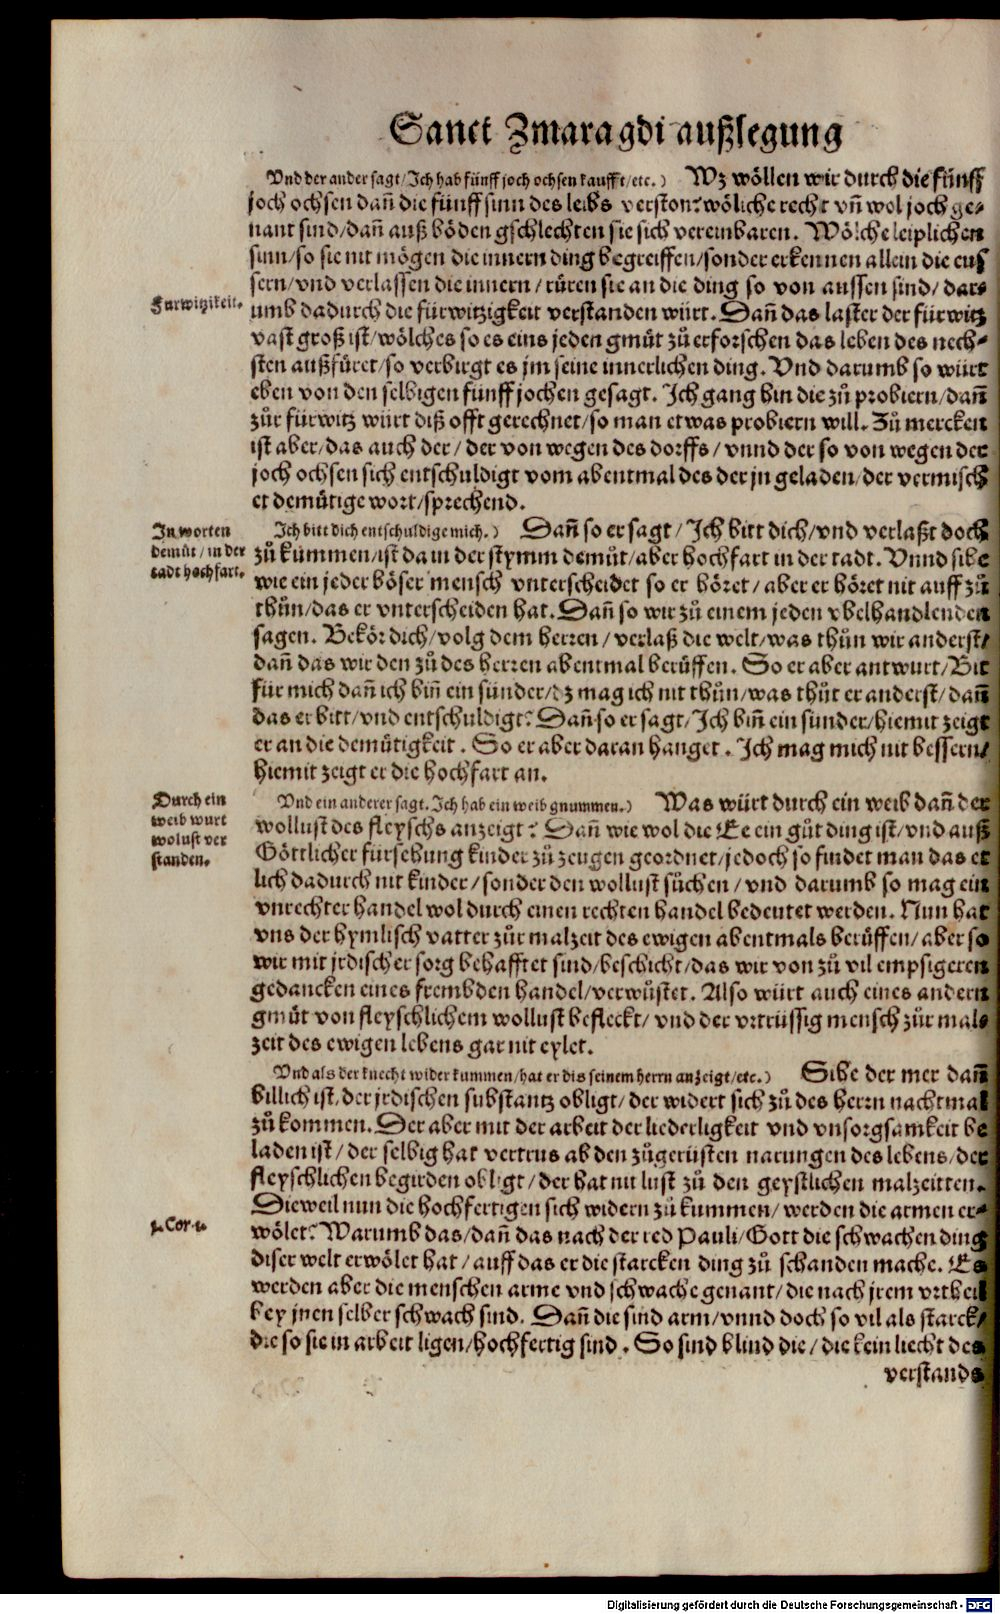 Sanct Zmaragdi außlegung
Vnd der ander sagt/Ich hab fünff joch ochsen kaufft/etc.) Wz wöllen wir durch die fünff
joch ochsen dañ die fünff sinn des leibs verston? wöliche recht vñ wol joch ge-
nant sind/dañ auß böden gschlechten sie sich vereinbaren. Wölche leiplichen
sinn/so sie nit mögen die innern ding begreiffen/sonder erkennen allein die eus
sern/vnd verlassen die innern/rüren sie an die ding so von aussen sind/dar-
Furwitzikeit.
umb dadurch die fürwitzigkeit verstanden würt. Dañ das laster der fürwitz
vast groß ist/wölches so es eins jeden gmüt zů erforschen das leben des nech-
sten außfüret/so verbirgt es jm seine innerlichen ding. Vnd darumb so würt
eben von den selbigen fünff jochen gesagt. Ich gang hin die zů probiern/dañ
zůr fürwitz würt diß offt gerechnet/so man etwas probiern will. Zů mercken
ist aber/das auch der/der von wegen des dorffs/vnnd der so von wegen der
joch ochsen sich entschuldigt vom abentmal des der jn geladen/der vermisch
et demütige wort/sprechend.
In worten
demüt/in der
tadt hochfart.
Ich bitt dich entschuldige mich.) Dañ so er sagt/Ich bitt dich/vnd verlaßt doch
zů kummen/ist da in der stymm demüt/aber hochfart in der tadt. Vnnd sihe
wie ein jeder böser mensch vnterscheidet so er höret/aber er höret nit auff zů
thůn/das er vnterscheiden hat. Dañ so wir zů einem jeden vbelhandlenden
sagen. Bekör dich/volg dem herren/verlaß die welt/was thůn wir anderst/
dañ das wir den zů des herren abentmal berüffen. So er aber antwurt/Bit
für mich dañ ich biñ ein sünder/dz mag ich nit thůn/was thůt er anderst/dañ
das er bitt/vnd entschuldigt? Dañ so er sagt/Ich biñ ein sünder/hiemit zeigt
er an die demütigkeit. So er aber daran hanget. Ich mag mich nit bessern/
hiemit zeigt er die hochfart an.
Durch ein
weib wurt
wolust ver
standen.
Vnd ein anderer sagt. Ich hab ein weib gnummen.) Was würt durch ein weib dañ der
wollust des fleyschs anzeigt? Dañ wie wol die Ee ein gůt ding ist/vnd auß
Göttlicher fürsehung kinder zů zeugen geordnet/jedoch so findet man das et
lich dadurch nit kinder/sonder den wollust sůchen/vnd darumb so mag ein
vnrechter handel wol durch einen rechten handel bedeutet werden. Nun hat
vns der hymlisch vatter zůr malzeit des ewigen abentmals berüffen/aber so
wir mit jrdischer sorg behafftet sind/beschicht/das wir von zů vil empsigeren
gedancken eines frembden handel/verwůstet. Also würt auch eines andern
gmüt von fleyschlichem wollust befleckt/vnd der vrtrüssig mensch zůr mal-
zeit des ewigen lebens gar nit eylet.
Vnd als der knecht wider kummen/hat er dis seinem herrn anzeigt/etc.) Sihe der mer dañ
billich ist/der jrdischen substantz obligt/der widert sich zů des herrn nachtmal
zů kommen. Der aber mit der arbeit der liederligkeit vnd vnsorgsamkeit be
laden ist/der selbig hat vertrus ab den zůgerüsten narungen des lebens/der
fleyschlichen begirden obligt/der hat nit lust zů den geystlichen malzeitten.
Dieweil nun die hochfertigen sich widern zů kummen/werden die armen er-
1. Cor. 1.
wölet? Warumb das/dañ das nach der red Pauli/Gott die schwachen ding
diser welt erwölet hat/auff das er die starcken ding zů schanden mache. Es
werden aber die menschen arme vnd schwache genant/die nach jrem vrtheil
bey jnen selber schwach sind. Dañ die sind arm/vnnd doch so vil als starck/
die so sie in arbeit ligen/hochfertig sind. So sind blind die/die kein liecht des
verstands
Digitalisierung gefördert durch die Deutsche Forschungsgemeinschaft - DFG